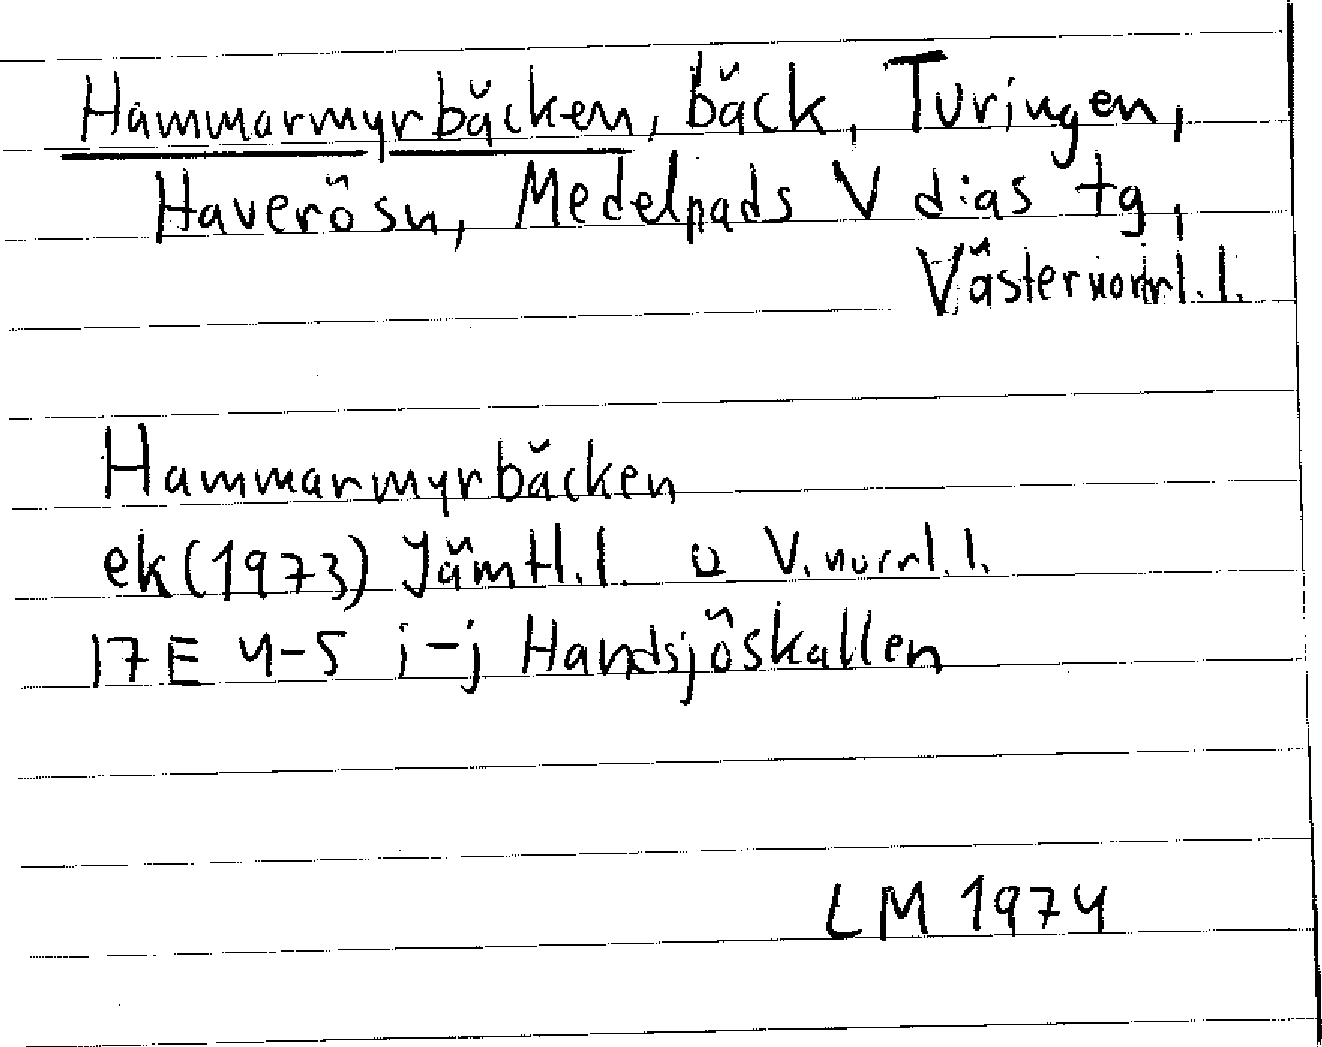 Hammarmyrbäcken, bäck, Turingen,
Haverö sn, Medelpads V d:as tg,
Västernorrl. l.
Hammarmyrbäcken
ek (1973) Jämtl. l. o V. norrl. l.
17 E 4-5 i-j Handsjöskallen
LM 1974